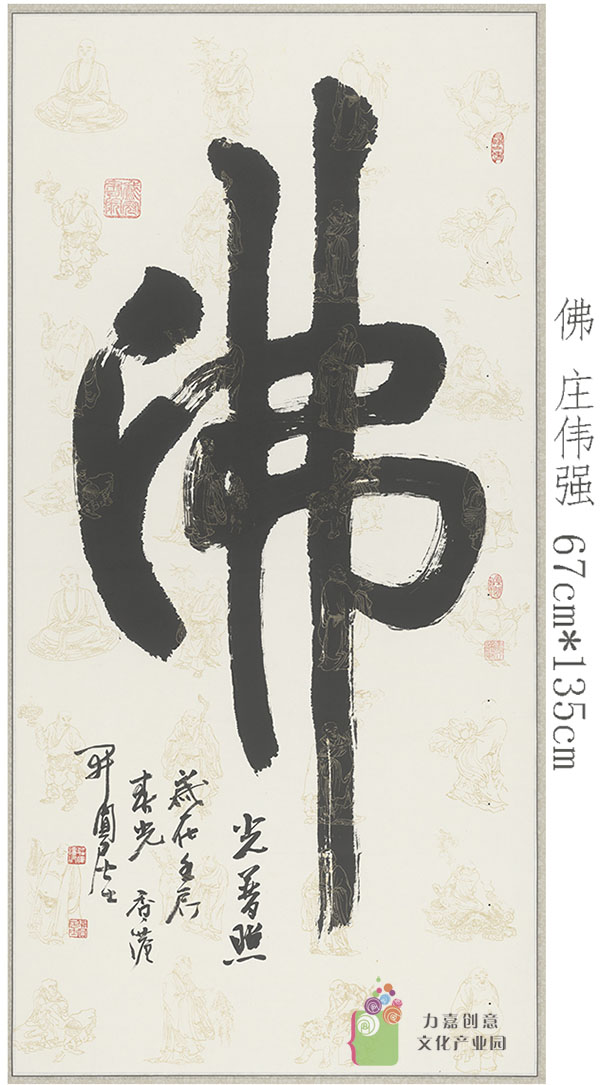 佛
光普照
歲在壬辰
春光 香港
圓居士
佛 庄伟强 67cm*135cm
力嘉创意
文化产业园